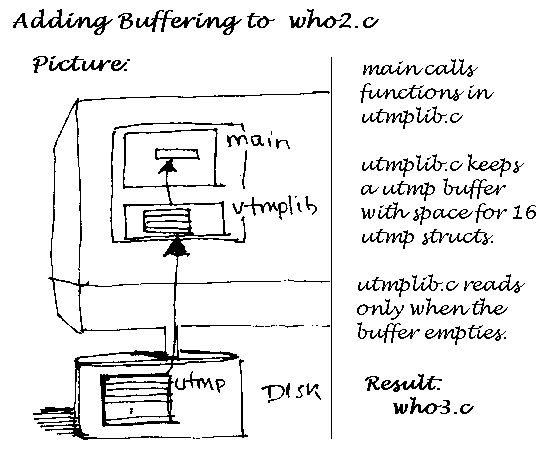 Adding Buffering to who2.c
Picture:
main
utmplib
utmp
DISK
main calls
functions in
utmplib.c
utmplib.c keeps
a utmp buffer
with space for 16
utmp structs.
utmplib.c reads
only when the
buffer empties.
Result:
who3.c